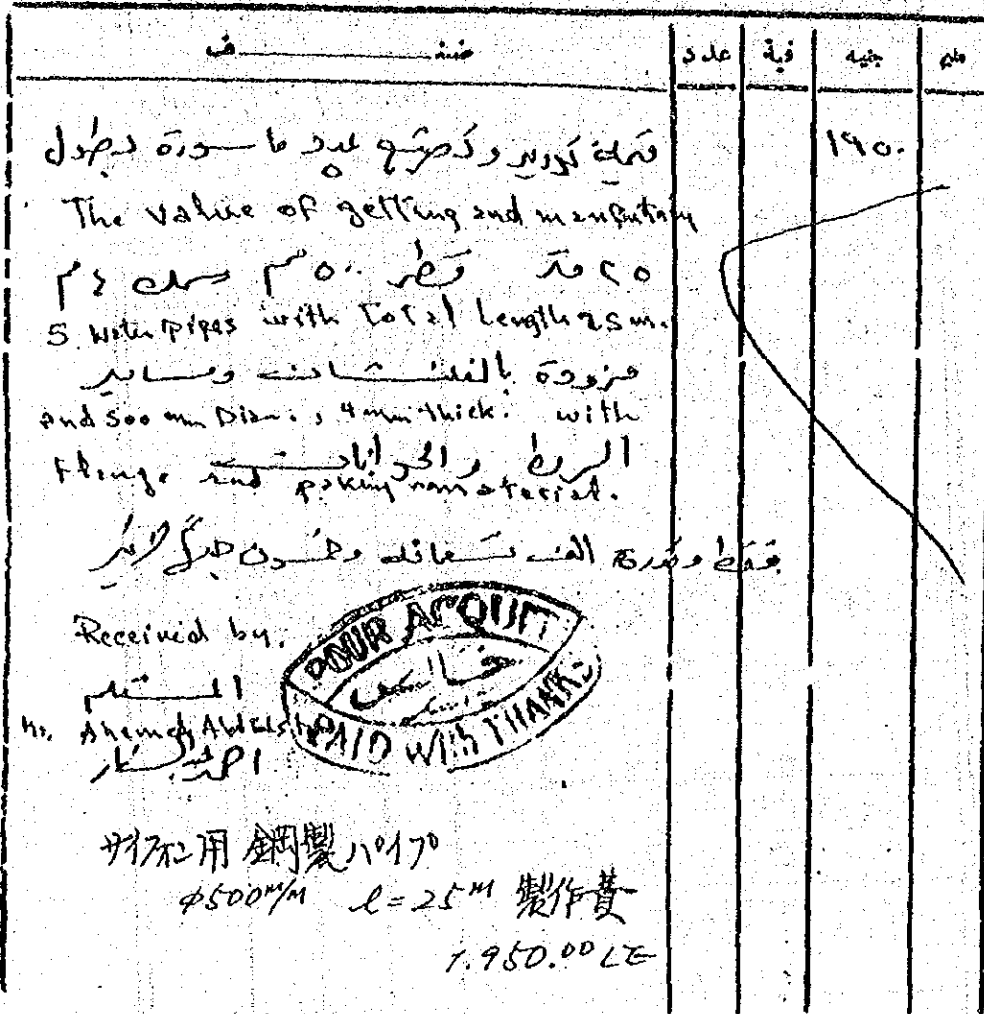 صنف عدد فئة جنيه مليم
قيمة توريد وتصنيع عدد ٥ ماسورة بطول ١٩٥٠
The value of getting and manfutring
٢٥ متر قطر ٥٠٠ مم وسمك ٤ مم
5 water pipes with Total length 25 m.
مزودة بالفلنشات ومسامير
and 500 mm Diam., 4 mm thick. with
الربط والجوانات
flange and paking material.
فقط وقدره الف تسعمائه وخمسون جنيها لاغير
Received by.
POUR ACQUIT
خالص
PAID With THANKS
المستلم
Mr. Ahemed
サイフォン用 鋼製パイプ
φ500m/m l=25M 製作費
1.950.00 LE